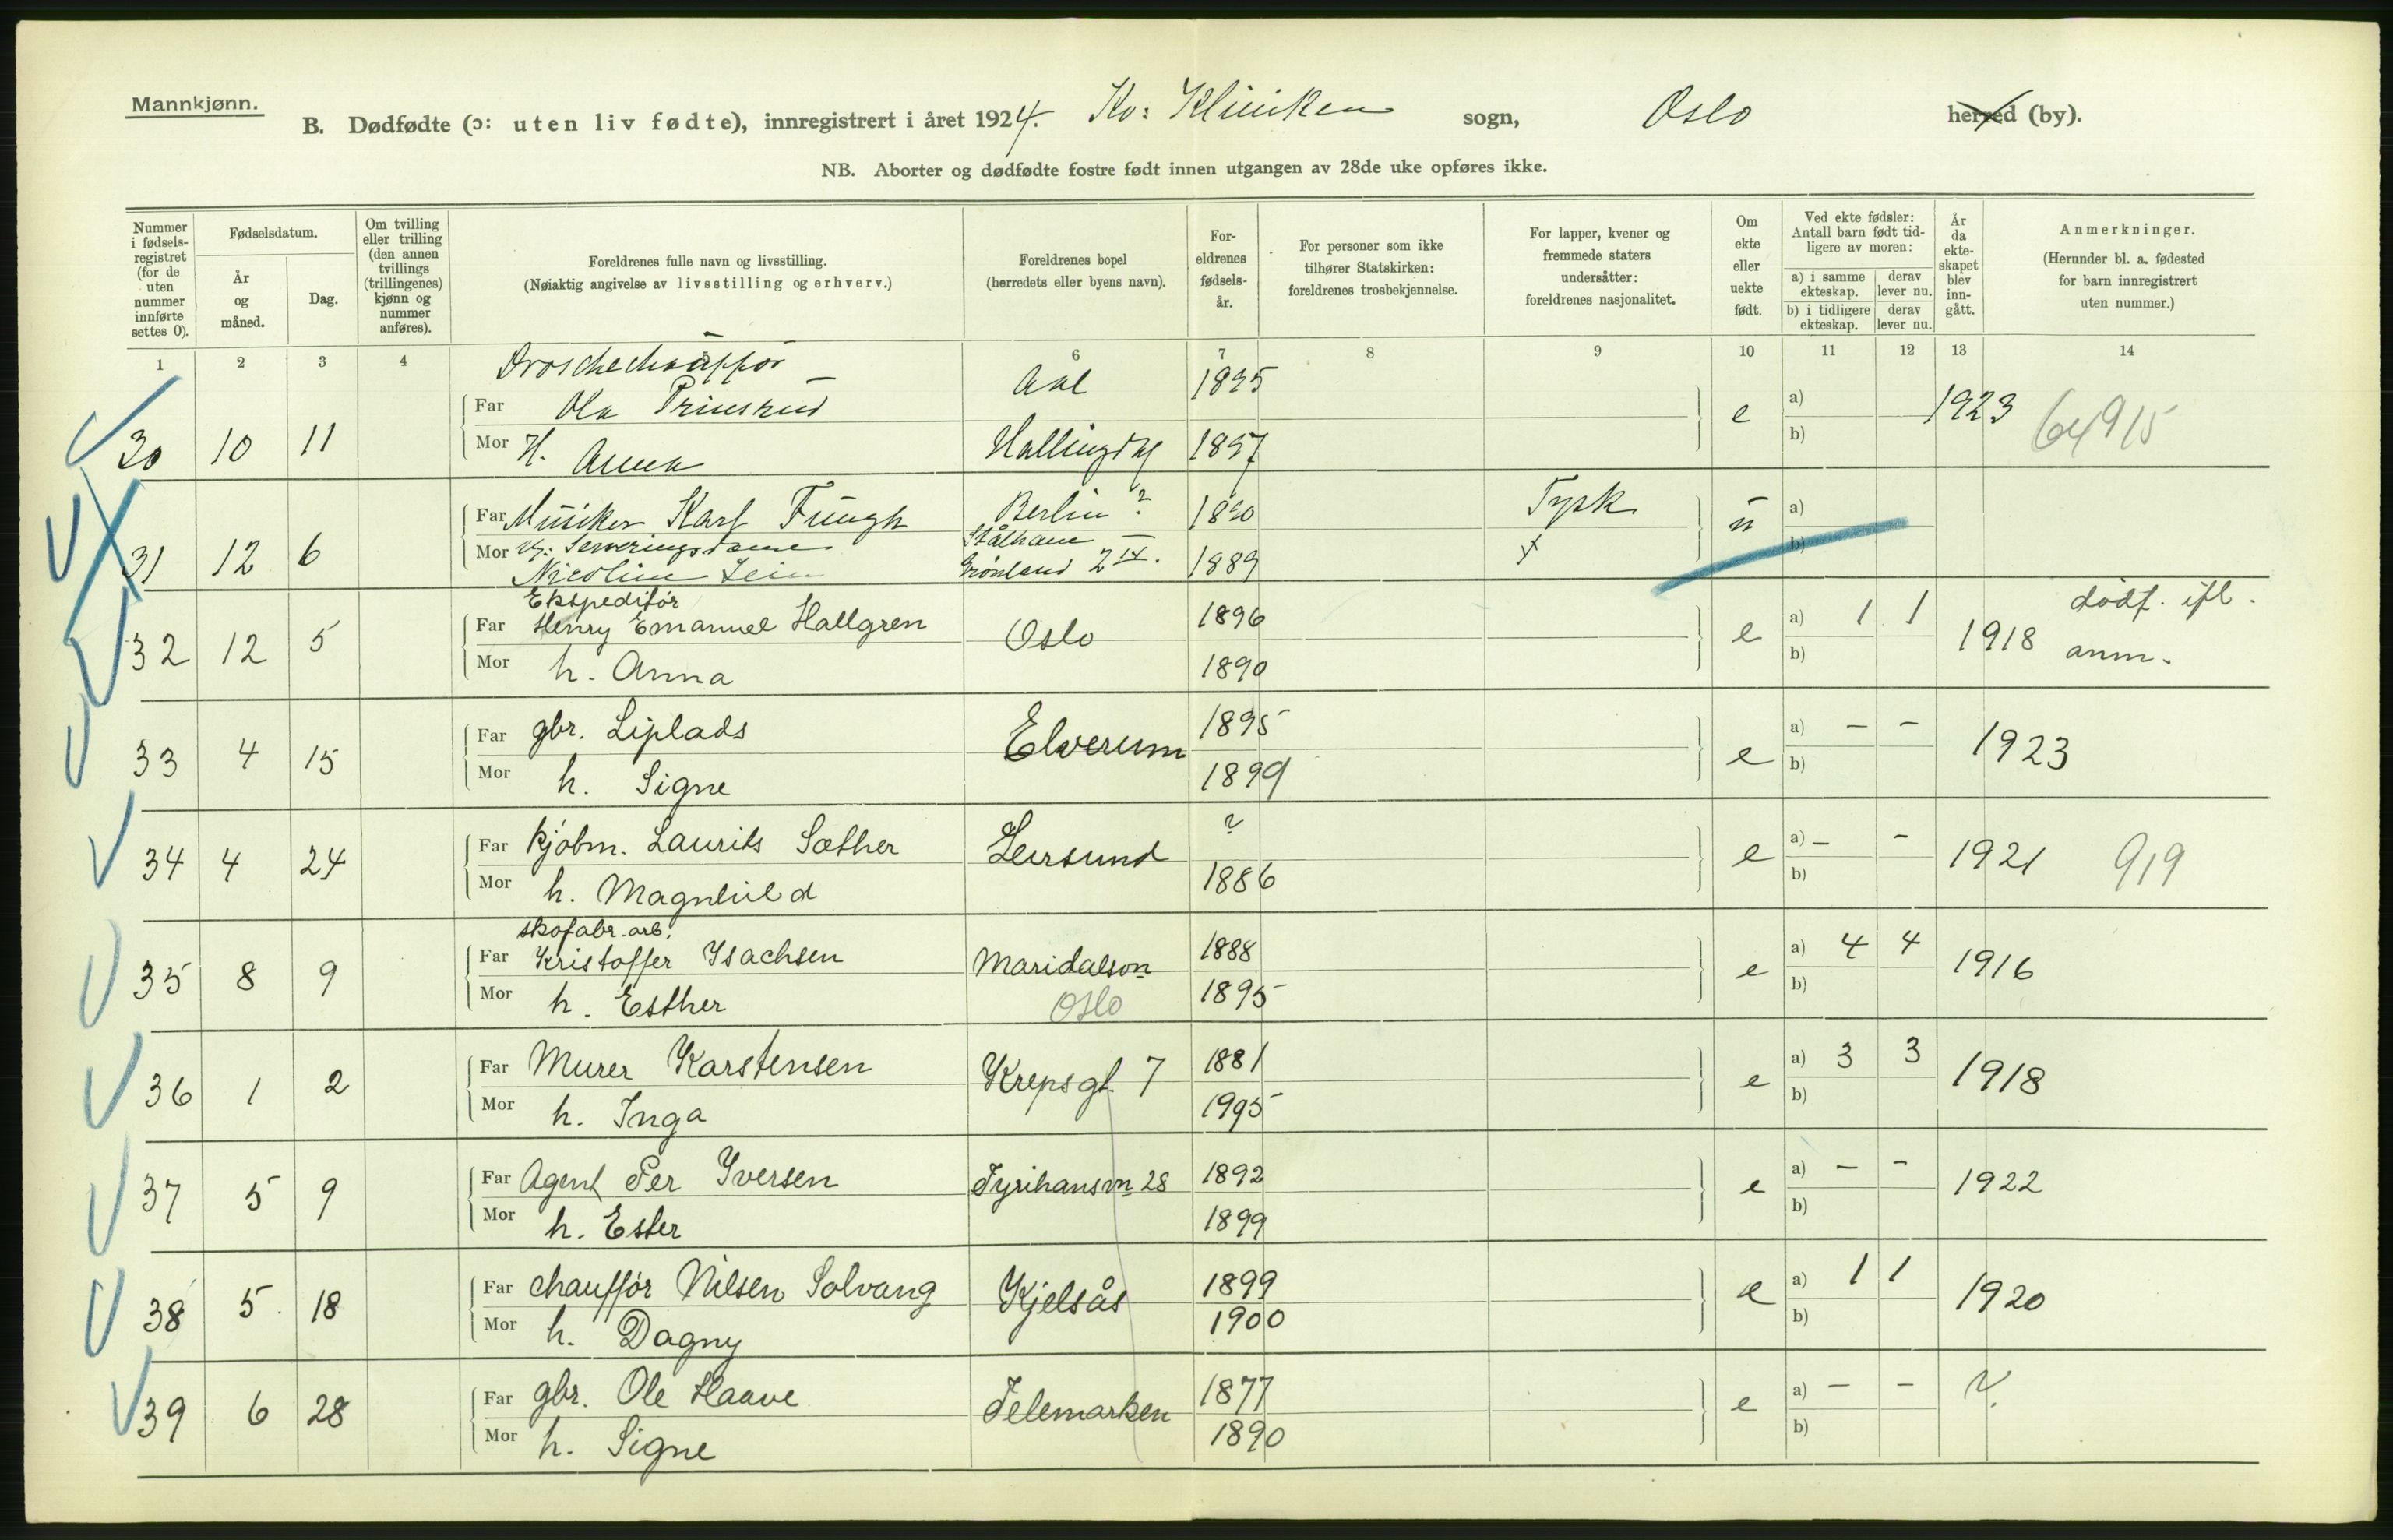 Mannkjønn.
B. Dødfødte (ɔ: uten liv fødte), innregistrert i året 1924. Kv: Kliniken sogn, Oslo herred (by).
NB. Aborter og dødfødte fostre født innen utgangen av 28de uke opføres ikke.
Nummer i fødselsregistret (for de uten nummer innførte settes 0).
Fødselsdatum.
År og måned.
Dag.
Om tvilling eller trilling (den annen tvillings (trillingenes) kjønn og nummer anføres).
Foreldrenes fulle navn og livsstilling.
(Nøiaktig angivelse av livsstilling og erhverv.)
Foreldrenes bopel
(herredets eller byens navn).
Foreldrenes fødselsår.
For personer som ikke tilhører Statskirken: foreldrenes trosbekjennelse.
For lapper, kvener og fremmede staters undersåtter: foreldrenes nasjonalitet.
Om ekte eller uekte født.
Ved ekte fødsler: Antall barn født tidligere av moren:
a) i samme ekteskap. derav lever nu.
b) i tidligere ekteskap. derav lever nu.
År da ekteskapet blev inngått.
Anmerkninger.
(Herunder bl. a. fødested for barn innregistrert uten nummer.)
1 2 3 4 6 7 8 9 10 11 12 13 14
Far Ola Aal 1895
30 10 11 e a) b) 1923 64915
Mor H. Anna Hallingdal 1897
Far Musiker Karl Berlin? 1890 Tysk
31 12 6 u a) b)
Mor Serveringsdame Stålhane
Grønland 2 IV. 1889
Ekspeditør
Far Henry Emanuel Hallgren Oslo 1896
32 12 5 e a) 1 1 b) 1918 dødf. ifl. anm.
Mor h. Anna 1890
Far gbr. Liplads Elverum 1895
33 4 15 e a) - - b) 1923
Mor h. Signe 1899
Far kjøbm. Laurits Sæther Leirsund ?
34 4 24 e a) - - b) 1921 919
Mor h. Magnhild 1886
skofabr. arb.
Far Kristoffer Isachsen Maridalsvn 1888
35 8 9 e a) 4 4 b) 1916
Mor h. Esther Oslo 1895
Far Murer Karstensen Krepsgt. 7 1881
36 1 2 e a) 3 3 b) 1918
Mor h. Inga 1995
Far Agent Per Iversen Tyrihansvn 28 1892
37 5 9 e a) - - b) 1922
Mor h. Ester 1899
Far chauffør Nilsen Solvang Kjelsås 1899
38 5 18 e a) 1 1 b) 1920
Mor h. Dagny 1900
Far gbr. Ole Haave Telemarken 1877
39 6 28 e a) - - b) ?
Mor h. Signe 1890